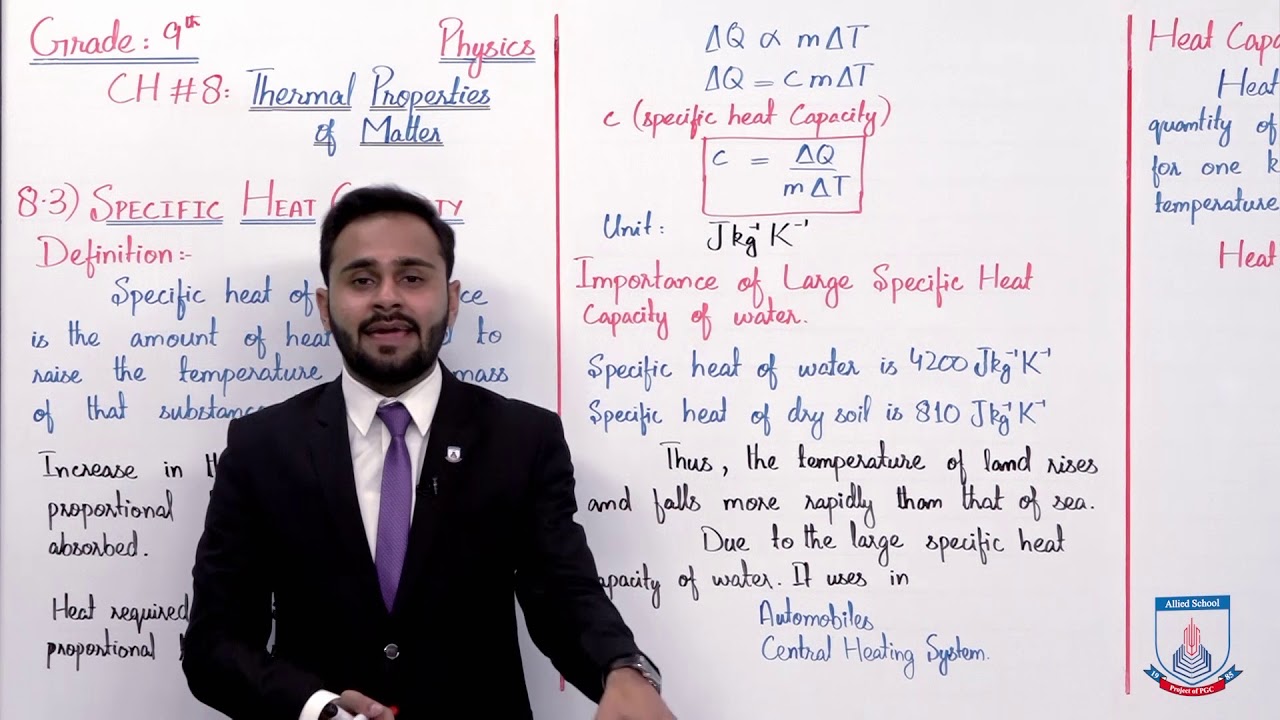 Grade: 9th
Physics
CH #8: Thermal Properties
of Matter
8.3) SPECIFIC HEAT
Definition:-
Specific heat of
is the amount of heat to
raise the temperature mass
of that substance
Increase in
proportional
absorbed.
Heat required
proportional
ΔQ ∝ mΔT
ΔQ = cmΔT
c (specific heat Capacity)
c = ΔQ / mΔT
Unit: Jkg⁻¹K⁻¹
Importance of Large Specific Heat
Capacity of water.
Specific heat of water is 4200 Jkg⁻¹K⁻¹
Specific heat of dry soil is 810 Jkg⁻¹K⁻¹
Thus, the temperature of land rises
and falls more rapidly than that of sea.
Due to the large specific heat
capacity of water. It uses in
Automobiles
Central Heating System.
Heat
Heat
quantity of
for one
temperature
Heat
Allied School
19 85
Project of PGC